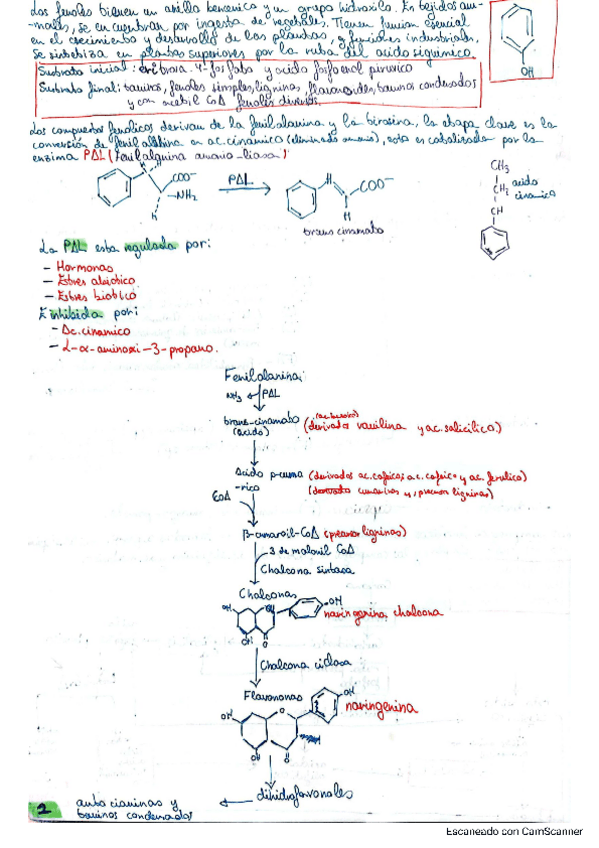 Los fenoles tienen un anillo bencenico y un grupo hidroxilo. En tejidos ani-
-males, se encuentran por ingesta de vegetales. Tienen funcion esencial
en el crecimiento y desarrollo de las plantas, y funciones industriales,
se sintetiza en plantas superiores por la ruta del acido siquimico
OH
Sustrato inicial: eritrosa 4-fosfato y acido fosfoenol piruvico
Sustrato final: taninos, fenoles simples, lignina, flavonoides, taninos condensados
y con acetil CoA fenoles diversos.
Los compuestos fenolicos derivan de la fenilalanina y la tirosina, la etapa clave es la
conversión de fenilalanina en ac. cinamico (eliminando amonio), esta es catalizada por la
enzima PAL (Fenilalanina amonio-liasa)
H
COO-
NH₂
H
PAL
H
COO-
H
trans cinamato
CH₃
CH₂
CH
acido
cinamico
La PAL esta regulada por:
- Hormonas
- Estres abiotico
- Estres biotico
E inhibida por:
- Ac. cinamico
- L-α-aminoxi-3-propano.
Fenilalanina:
NH₃ PAL
trans-cinamato (ac. benzoico)
(acido) (derivado vainilina y ac. salicilico)
Acido p-cuma (derivados ac. cafeico; a.c. cafeico y ac. ferulico)
-rico (derivado cumarinas y, precursor ligninas)
CoA
β-cumaroil-CoA (precursor ligninas)
3 de malonil CoA
Chalcona sintasa
Chalconas
OH
OH
OH
O
naringenina chalcona
Chalcona ciclasa
Flavononas
OH
OH
O
OH
O
naringenina
dihidroflavonoles
antocianinas y
taninos condensados
2
Escaneado con CamScanner